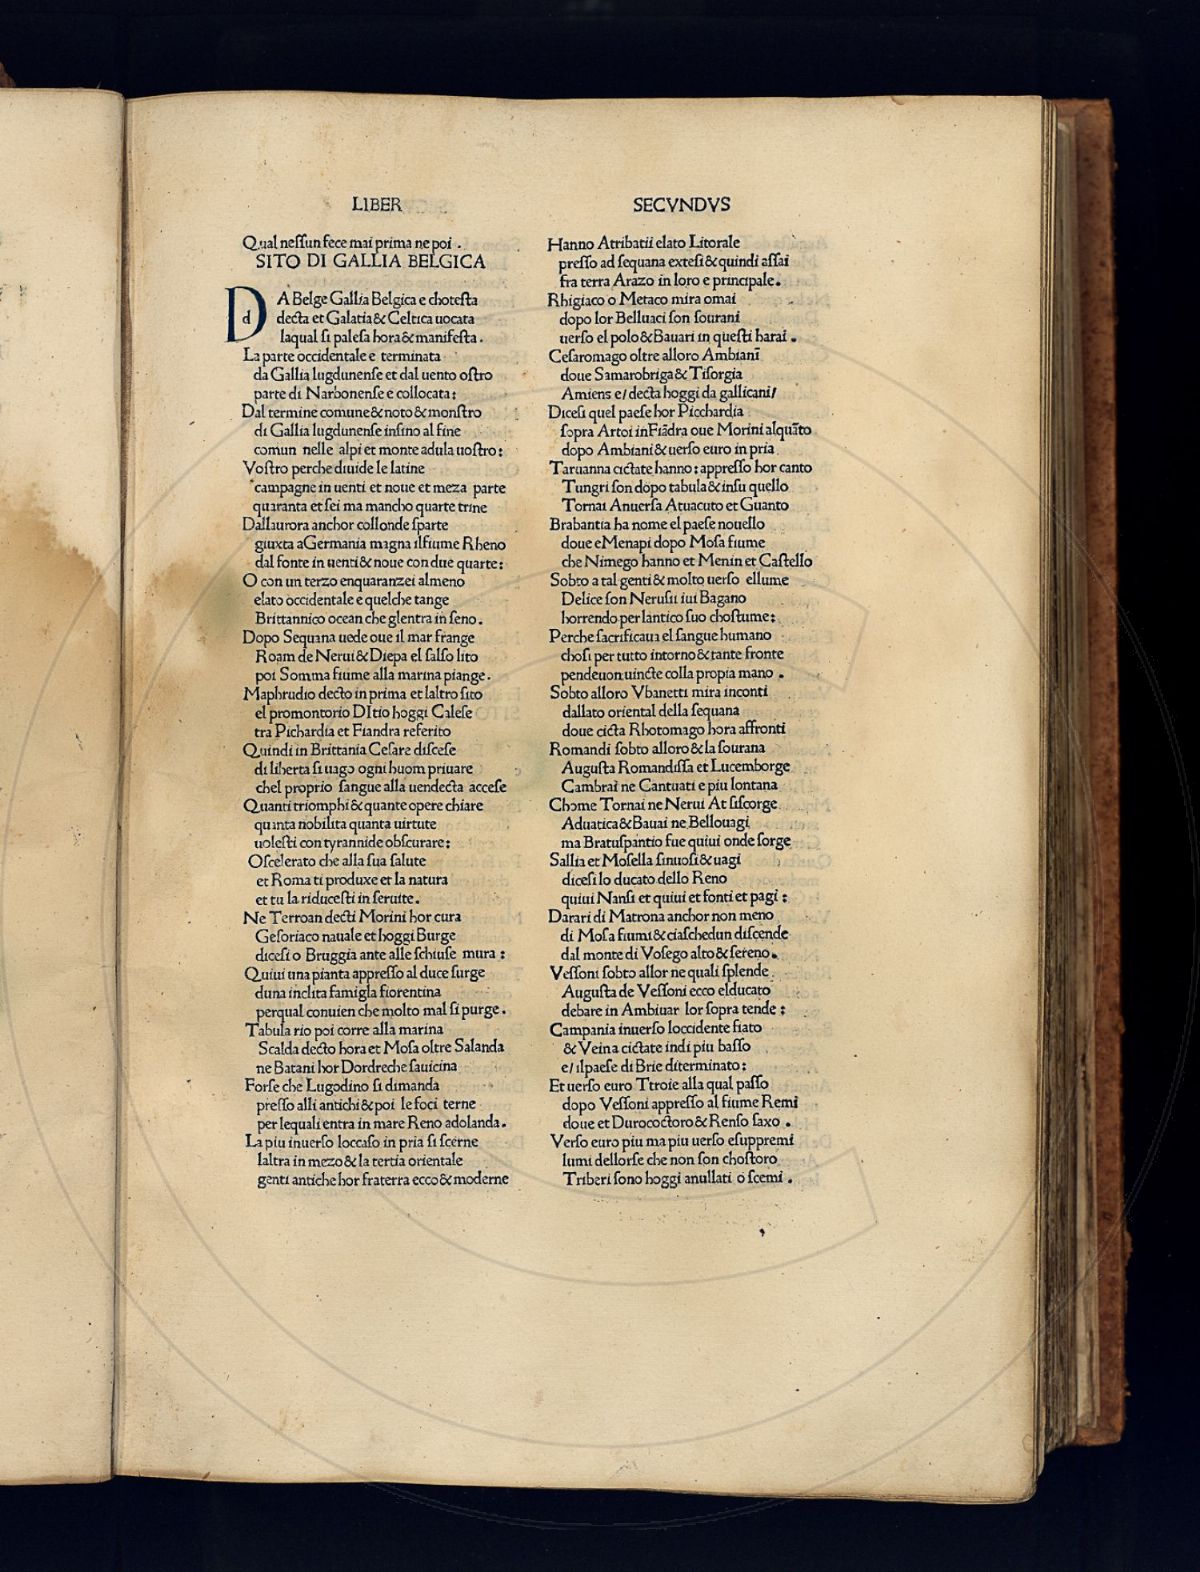 LIBER
Qual nessun fece mai prima ne poi .
SITO DI GALLIA BELGICA
D
d
A Belge Gallia Belgica e chotesta
decta et Galatia & Celtica uocata
laqual si palesa hora & manifesta .
La parte occidentale e terminata
da Gallia lugdunense et dal uento ostro
parte di Narbonense e collocata :
Dal termine comune & noto & monstro
di Gallia lugdunense insino al fine
comun nelle alpi et monte adula uostro :
Vostro perche diuide le latine
campagne in uenti et noue et meza parte
quaranta et sei ma mancho quarte trine
Dallaurora anchor collonde sparte
giuxta aGermania magna ilfiume Rheno
dal fonte in uenti & noue con due quarte :
O con un terzo enquaranzei almeno
elato occidentale e quelche tange
Brittannico ocean che glentra in seno .
Dopo Sequana uede oue il mar frange
Roam de Nerui & Diepa el salso lito
poi Somma fiume alla marina piange .
Maphrudio decto in prima et laltro sito
el promontorio DItio hoggi Calese
tra Pichardia et Fiandra referito
Quindi in Brittania Cesare discese
di liberta si uago ogni huom priuare
chel proprio sangue alla uendecta accese
Quanti triomphi & quante opere chiare
quanta nobilita quanta uirtute
uolesti con tyrannide obscurare :
O scelerato che alla sua salute
et Roma ti produxe et la natura
et tu la riducesti in seruite .
Ne Terroan decti Morini hor cura
Gesoriaco nauale et hoggi Burge
dicesi o Bruggia ante alle schiuse mura :
Quiui una pianta appresso al duce surge
duna inclita famigla fiorentina
perqual conuien che molto mal si purge .
Tabula rio poi corre alla marina
Scalda decto hora et Mosa oltre Salanda
ne Batani hor Dordreche sauicina
Forse che Lugodino si dimanda
presso alli antichi & poi le foci terne
per lequali entra in mare Reno adolanda .
La piu inuerso loccaso in pria si scerne
laltra in mezo & la tertia orientale
genti antiche hor fraterra ecco & moderne
SECVNDVS
Hanno Atribatii elato Litorale
presso ad sequana extesi & quindi assai
fra terra Arazo in loro e principale .
Rhigiaco o Metaco mira omai
dopo lor Belluaci son sourani
uerso el polo & Bauari in questi harai .
Cesaromago oltre alloro Ambianī
doue Samarobriga & Tisorgia
Amiens e/ decta hoggi da gallicani/
Dicesi quel paese hor Picchardia
sopra Artoi inFiādra oue Morini alquāto
dopo Ambiani & uerso euro in pria
Taruanna cictate hanno : appresso hor canto
Tungri son dopo tabula & insu quello
Tornai Anuersa Atuacuto et Guanto
Brabantia ha nome el paese nouello
doue eMenapi dopo Mosa fiume
che Nimego hanno et Menin et Castello
Sobto a tal genti & molto uerso ellume
Delice son Nerusii iui Bagano
horrendo per lantico suo chostume :
Perche sacrificaua el sangue humano
chosi per tutto intorno & tante fronte
pendeuon uincte colla propia mano .
Sobto alloro Vbanetti mira inconti
dallato oriental della sequana
doue cicta Rhotomago hora affronti
Romandi sobto alloro & la sourana
Augusta Romandissa et Lucemborge
Cambrai ne Cantuati e piu lontana
Chome Tornai ne Nerui At siscorge
Aduatica & Bauai ne Bellouagi
ma Bratuspantio fue quiui onde sorge
Sallia et Mosella sinuosi & uagi
dicesi lo ducato dello Reno
quiui Nansi et quiui et fonti et pagi :
Darari di Matrona anchor non meno
di Mosa fiumi & ciaschedun discende
dal monte di Vosego alto & sereno .
Vessoni sobto allor ne quali splende
Augusta de Vessoni ecco elducato
debare in Ambiuar lor sopra tende :
Campania inuerso loccidente fiato
& Veina cictate indi piu basso
e/ ilpaese di Brie diterminato :
Et uerso euro Ttroie alla qual passo
dopo Vessoni appresso al fiume Remi
doue et Durococtoro & Renso saxo .
Verso euro piu ma piu uerso esuppremi
lumi dellorse che non son chostoro
Triberi sono hoggi anullati o scemi .